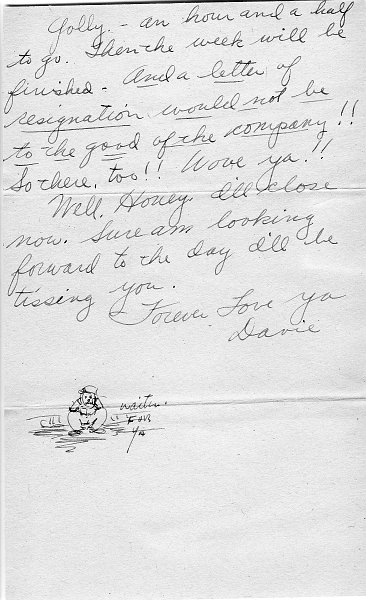 Golly. - an hour and a half
to go. Then the week will be
finished - And a letter of
resignation would not be
to the good of the company!!
So there, too!! Wove ya!!
Well, Honey, I'll close
now. Sure am looking
forward to the day I'll be
tissing you.
Forever Love ya
Davie
waitin.
FOR
YA